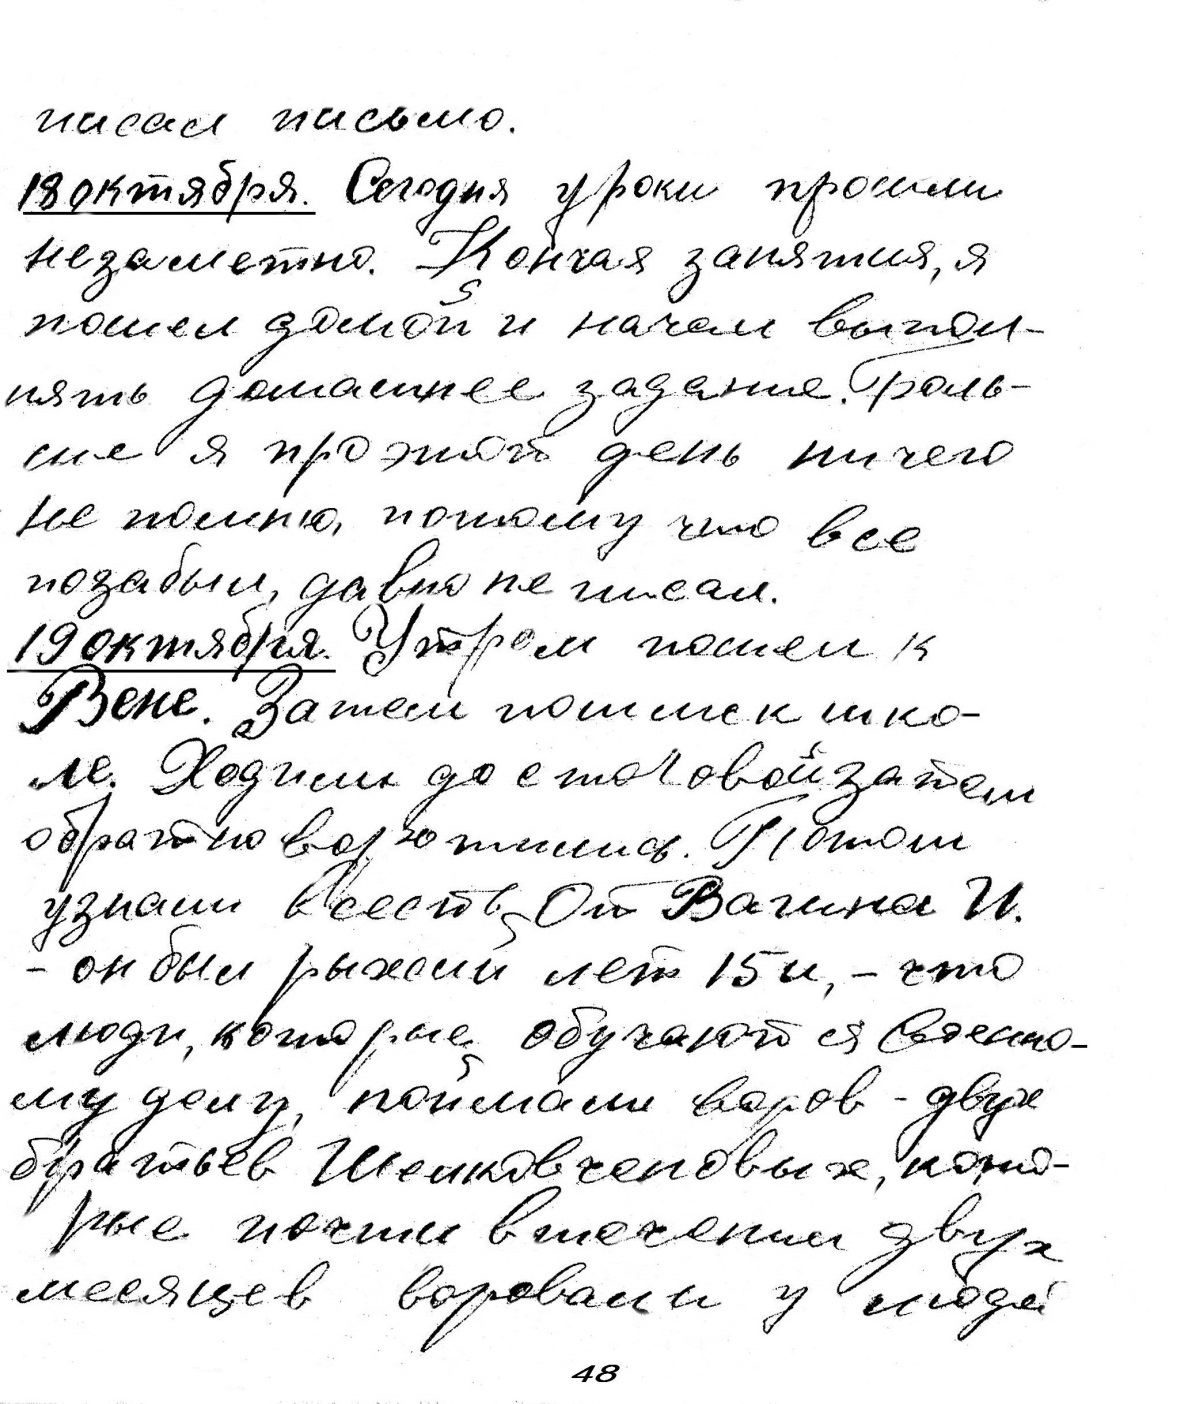 писал письмо.
18 октября. Сегодня уроки прошли
незаметно. Кончая занятия, я
пошел домой и начал выпол-
нять домашнее задание. Боль-
ше я про этот день ничего
не помню, потому что все
позабыл, давно не писал.
19 октября. Утром пошел к
Вене. Затем пошли к шко-
ле. Ходили до столовой затем
обратно воротились. Потом
узнали весть От Вагина И.
- он был рыжий лет 15и, - что
люди, которые обучаются военно-
му делу, поймали воров - двух
братьев, кото-
рые почти в течении двух
месяцев воровали у людей
48